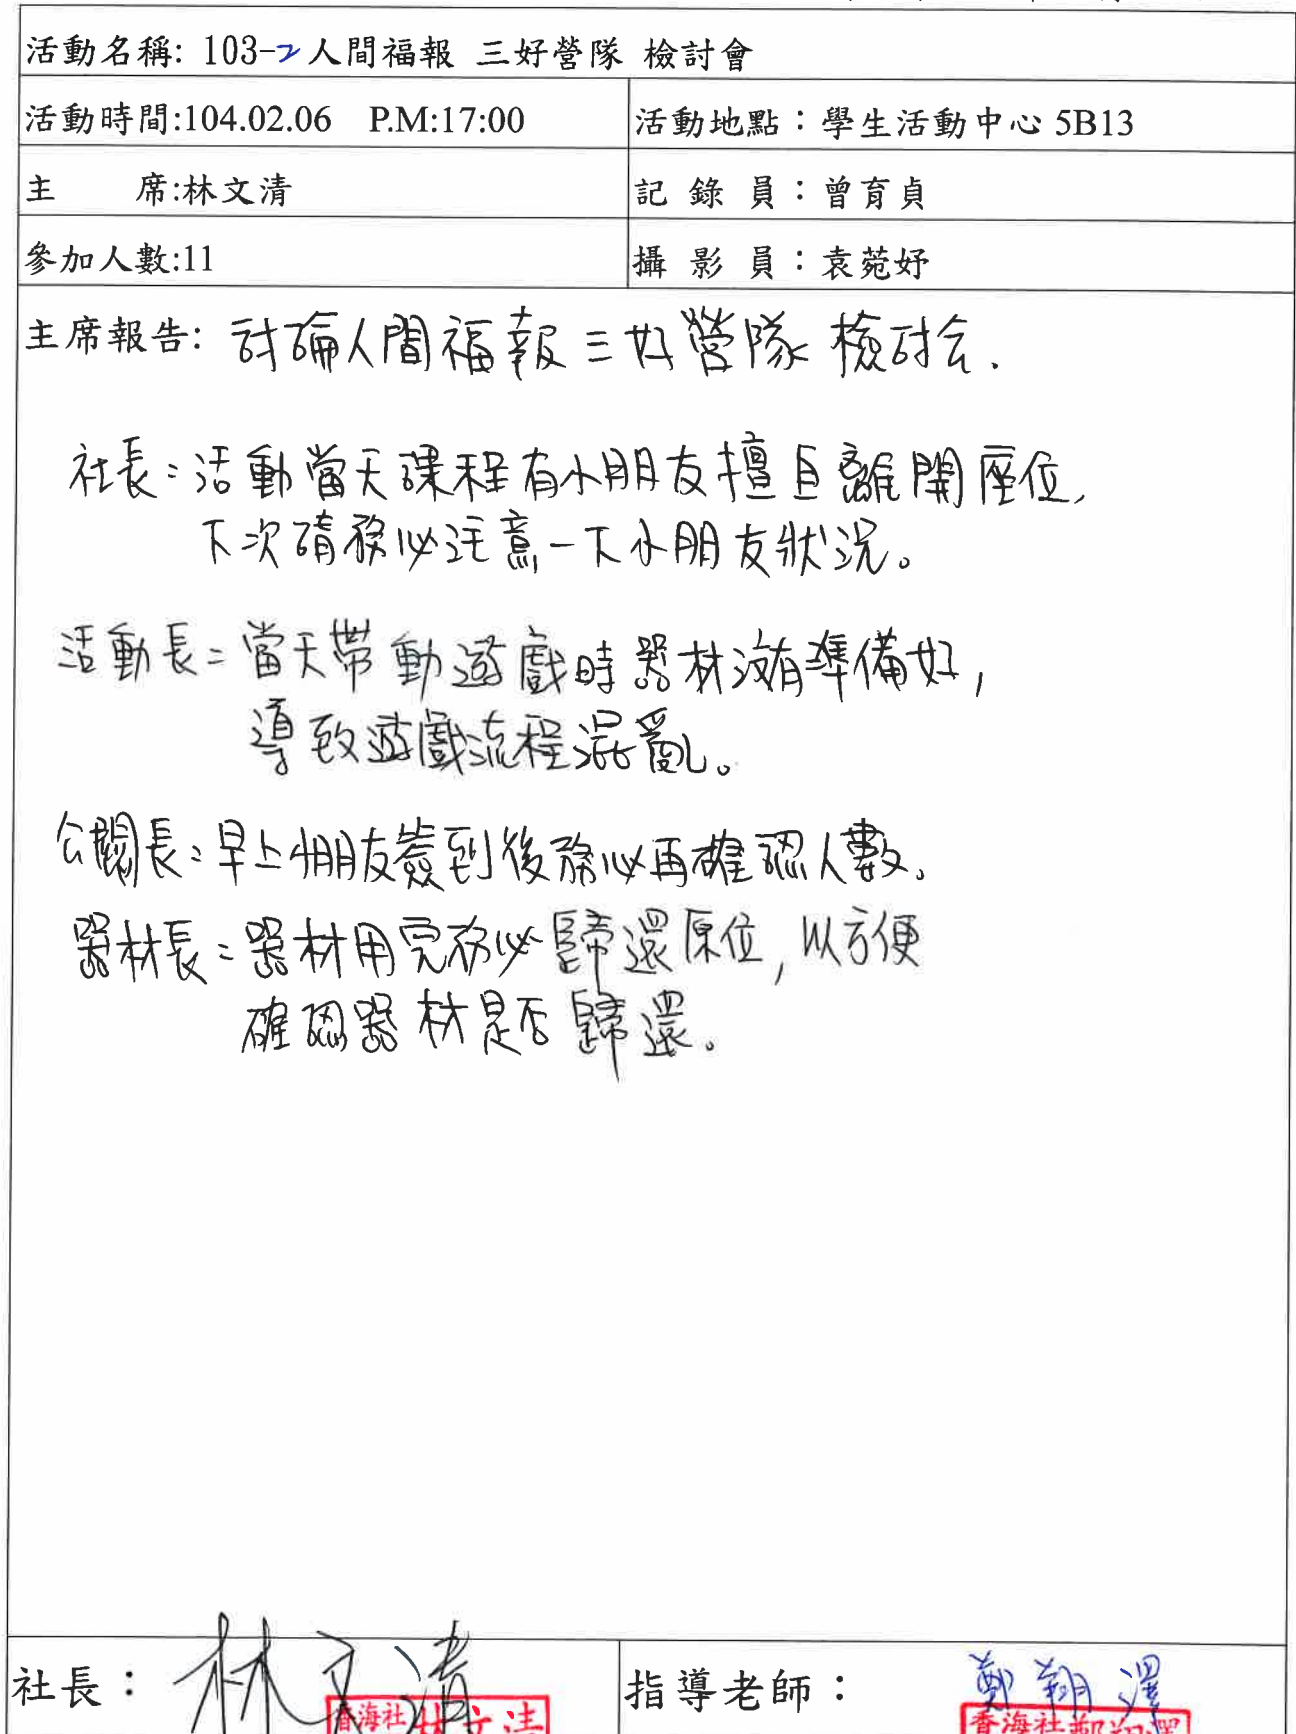 活動名稱: 103-2人間福報 三好營隊 檢討會
活動時間:104.02.06 P.M:17:00
活動地點：學生活動中心 5B13
主 席:林文清
記 錄 員：曾育貞
參加人數:11
攝 影 員：袁菀妤
主席報告: 討論人間福報三好營隊檢討会.
社長：活動當天課程有小朋友擅自離開座位,
下次請務必注意一下小朋友狀況。
活動長：當天帶動遊戲時器材沒有準備好,
導致遊戲流程混亂。
公關長：早上小朋友簽到後務必再確認人數。
器材長：器材用完務必歸還原位,以方便
確認器材是否歸還。
社長： 林文清
香海社 林文清
指導老師： 鄭翔澤
香海社 鄭翔澤